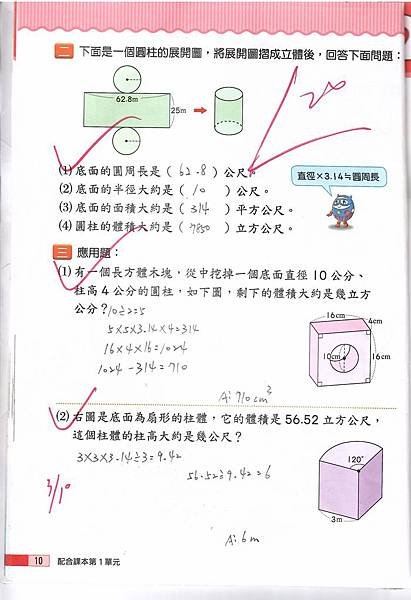 二 下面是一個圓柱的展開圖，將展開圖摺成立體後，回答下面問題：
62.8m
25m
20
(1)底面的圓周長是（ 62.8 ）公尺。
(2)底面的半徑大約是（ 10 ）公尺。
(3)底面的面積大約是（ 314 ）平方公尺。
(4)圓柱的體積大約是（ 7850 ）立方公尺。
直徑×3.14≒圓周長
三 應用題：
(1)有一個長方體木塊，從中挖掉一個底面直徑 10 公分、
柱高 4 公分的圓柱，如下圖，剩下的體積大約是幾立方
公分？10÷2=5
5×5×3.14×4=314
16×4×16=1024
1024-314=710
A：710cm³
16cm
4cm
10cm
16cm
(2)右圖是底面為扇形的柱體，它的體積是 56.52 立方公尺，
這個柱體的柱高大約是幾公尺？
3×3×3.14÷3=9.42
56.52÷9.42=6
A：6m
120°
3m
3/10
10 配合課本第 1 單元